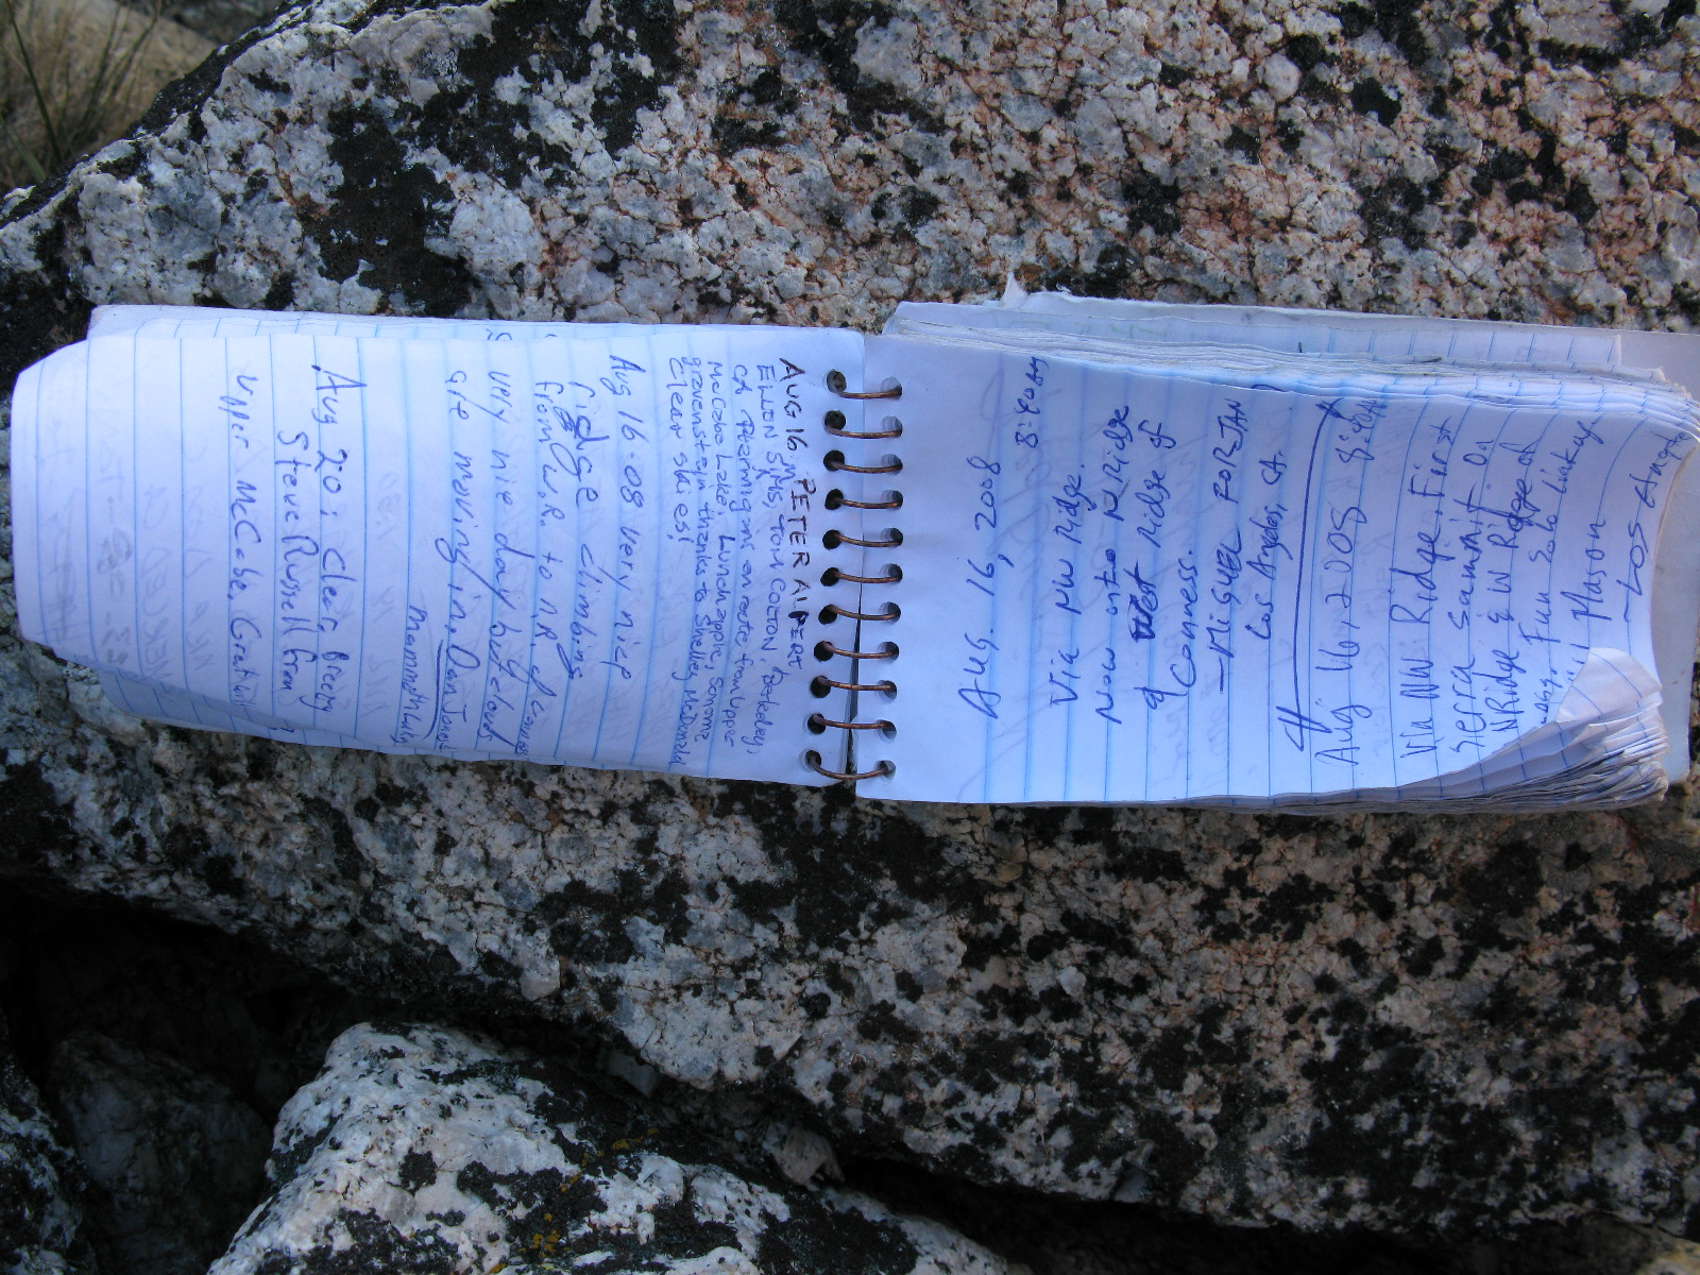 Aug. 16, 2008
8:40am
Via NW Ridge.
Now onto N Ridge
& West Ridge of
Conness.
- MIGUEL FORJAN
Los Angeles, CA.
Aug 16, 2008
Via NW Ridge. First
Sierra summit on
N Ridge & W Ridge of
Fun solo linkup
Mason
- Los Angeles
AUG 16, PETER ALPERT,
ELLEN SIMS, TOM COLTON, Berkeley,
CA en route from Upper
McCabe Lake. Lunch apple, some
gravenstein thanks to Shelley McDonald
Clear skies!
Aug 16-08 very nice
ridge climbing
from W.R. to N.R. of Conness
very nice day but clouds
are moving in. Dan Jones
Mammoth Lakes
Aug 20: Clear, Breezy
Steve Russell from
Upper McCabe. Great